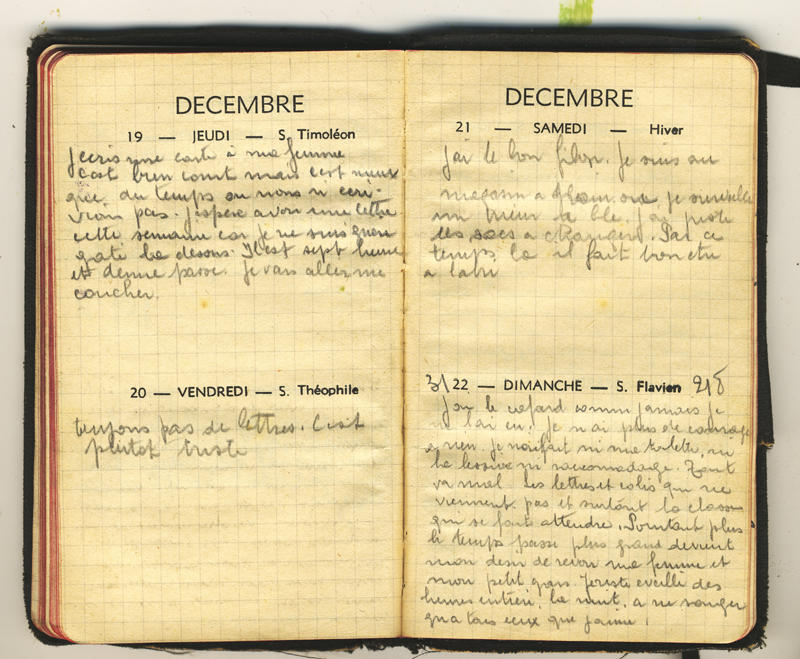 DECEMBRE
19 — JEUDI — S. Timoléon
Jecris une carte à ma femme
C'est bien court mais c'est mieux
que du temps ou nous n ecri-
vions pas. J'espere avoir une lettre
cette semaine car je ne suis guere
gaté la dessus. Il est sept heure
et demie passe. Je vais aller me
coucher.
20 — VENDREDI — S. Théophile
toujours pas de lettres. C'est
plutot triste
DECEMBRE
21 — SAMEDI — Hiver
J'ai le bon filon. Je suis au
magasin a je surveille
un la ble. J'ai juste
les sacs a changer. Par ce
temps la il fait bon etre
a labri
31 22 — DIMANCHE — S. Flavien 218
J'ai le cafard comme jamais je
n l'ai eu. Je n ai plus de courage
a rien. Je n'ai fait ni ma toilette, ni
la lessive ni raccomodage. Tout
va mal les lettres et colis qui ne
viennent pas et surtout la classe
qui se fait attendre. Pourtant plus
le temps passe plus grand devient
mon desir de revoir ma femme et
mon petit gars. Je reste eveillé des
heures entiere, la nuit, a ne songer
qu a tous ceux que j'aime !